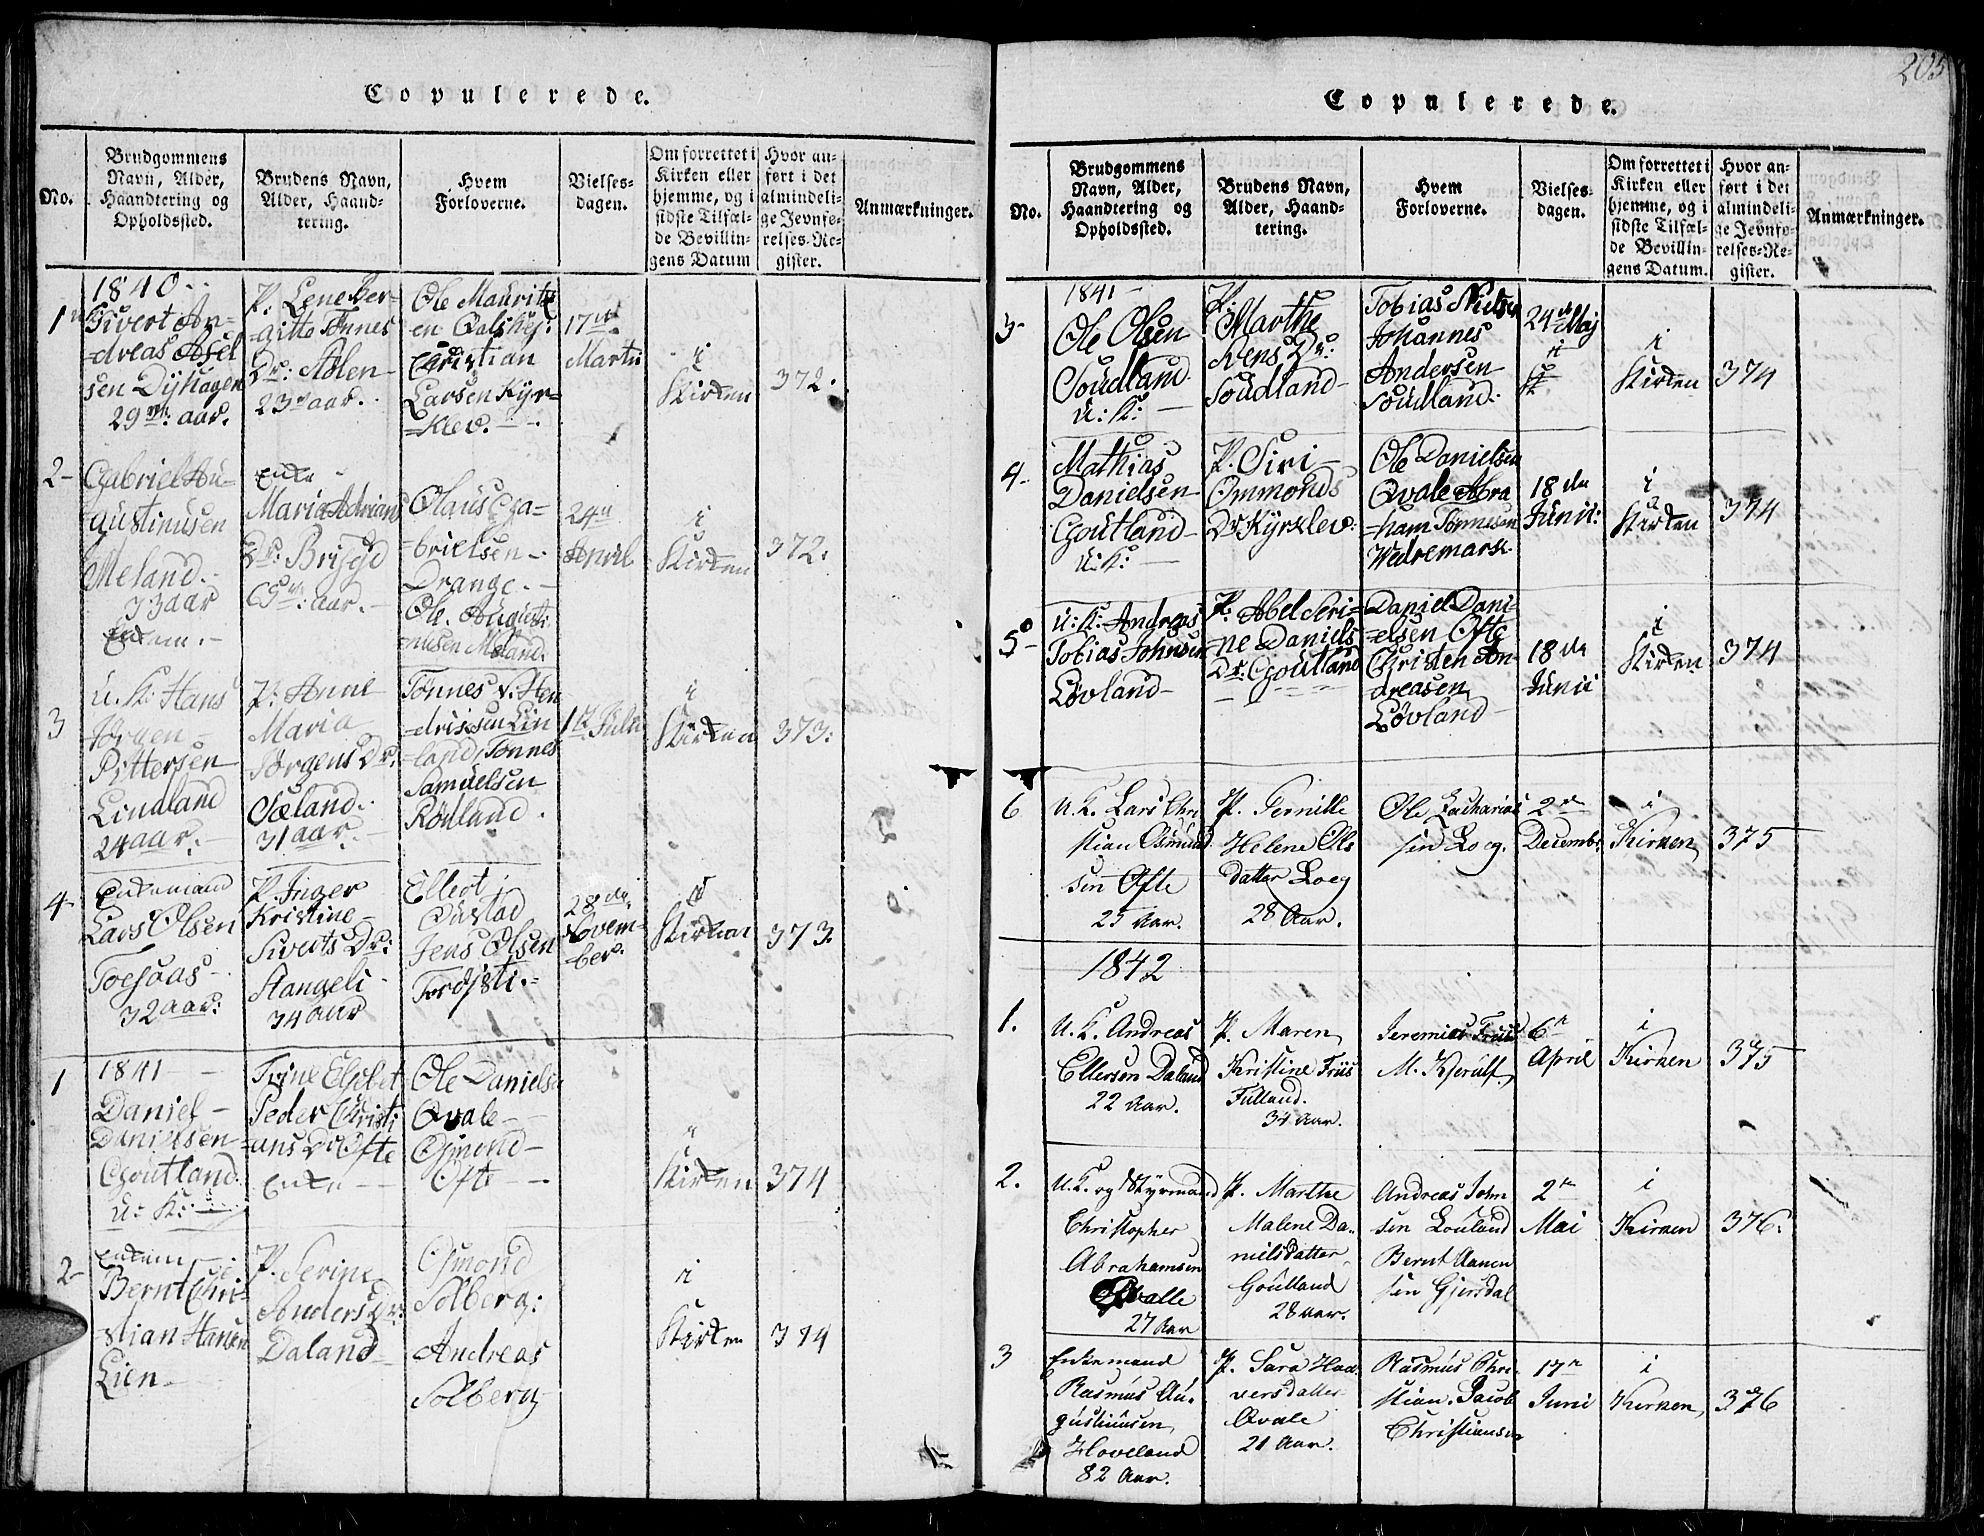 Copulerede.
No.
Brudgommens
Navn, Alder,
Haandtering og
Opholdssted.
Brudens Navn,
Alder, Haand-
tering.
Hvem
Forloverne.
Vielses-
dagen.
Om forrettet i
Kirken eller
hjemme, og i
sidste Tilfæl-
de Bevillin-
gens Datum
Hvor an-
ført i det
almindeli-
ge Jevnfø-
relses-Re-
gister.
Anmærkninger.
1840
1
Sivert An-
dreas Asel
sen Dyshagen
29 aar.
P. Leneber-
gitte Tønnes
Dr: Aalen
23 aar.
Ole Mauritz
en
Christian
Larsen Kyr-
klev.
17de
Martii
i
Kirken
372.
2
Gabriel Au-
gustinusen
Meland.
73 aar
Enkem.
Enke
Maria Adrians
Dr:
aar.
Olaus Ga-
brielsen
Drange.
Ole Augusti
nusen Meland.
24
April
i
Kirken
372.
3
U. K. Hans
Jørgen
Pettersen
Lindland
24 aar.
P. Anne
Maria
Jørgens Dr.
Sæland.
31 aar.
Tønnes v: Hen
drissen Lin
land, Tønnes
Samuelsen
Røiland.
1ste Julii
i
Kirken
373.
4
Enkemand
Lars Olsen
Toesaas
32 aar:
P. Inger
Kristine
Siverts Dr:
Stangeli
34 aar
Ellert
Jens Olsen
28de
Novem-
ber.
i
Kirken
373.
1841
1
Daniel
Danielsen
Goutland
U: K:
Peder Christi
ans Dr Ofte
Enke
Ole Daniels
Qvale
Osmond
Ofte
i
Kirken
374
2
Enkem
Bernt Chri-
stian Hansen
Lien
P. Serine
Anders Dr:
Daland
Osmond
Solberg:
Andreas
Solberg
i
Kirken
374
205
Copulerede.
No.
Brudgommens
Navn, Alder,
Haandtering og
Opholdssted.
Brudens Navn,
Alder, Haand-
tering.
Hvem
Forloverne.
Vielses-
dagen.
Om forrettet i
Kirken eller
hjemme, og i
sidste Tilfæl-
de Bevillin-
gens Datum.
Hvor an-
ført i det
almindeli-
ge Jevnfø-
relses-Re-
gister.
Anmærkninger.
1841
3
Ole Olsen
Soudland
U: K:
P:
Marthe
Rens Dr:
Soudland
Tobias Nielsen
Johannes
Andersen
Soudland.
24de Maj
i
Kirken
374
4
Mathias
Danielsen
Goutland
U: K:
P. Siri
Ommonds
Dr Kyrklev:
Ole Danielsen
Qvale Abra
ham Tønnesen
Wedremark.
18de
Junii:
i
Kirken
374
5
U: K: Andreas
Tobias Johnsen
Løvland
P. Abel Seri-
ne Daniels
Dr: Goutland
Daniel Dani-
elsen Ofte
Christen An-
dreasen
Løvland
18de
Junii
i
Kirken
374
6
U. K. Lars Chri
stian Osmund
sen Ofte
25 Aar.
P. Pernille
Helene Ols
datter Loeg
28 Aar.
Ole Zacharias
sen Loeg.
2de
Decembr.
i
Kirken
375
1842
1.
U. K. Andreas
Ellersen Daland
22 Aar.
P. Maren
Kristine Friis
Fulland.
34 Aar.
Jeremias Friis
M. Kjerulf
6te
April
i
Kirken
375
2.
U. K. og Styrmand
Christopher
Abrahamsen
Qvalle
27 Aar
P. Marthe
Malene Da-
nielsdatter
Goutland
28 aar.
Andreas John
sen Louland
Bernt Aanen
sen Gjersdal
2de
Mai
i
Kirken
376.
3
Enkemand
Rasmus Au-
gustinusen
Hoveland
82 Aar.
P. Sara Haa
versdatter
Qvale
21 Aar.
Rasmus Chri-
stian Jacob
Christiansen
17de
Juni
i
Kirken
376